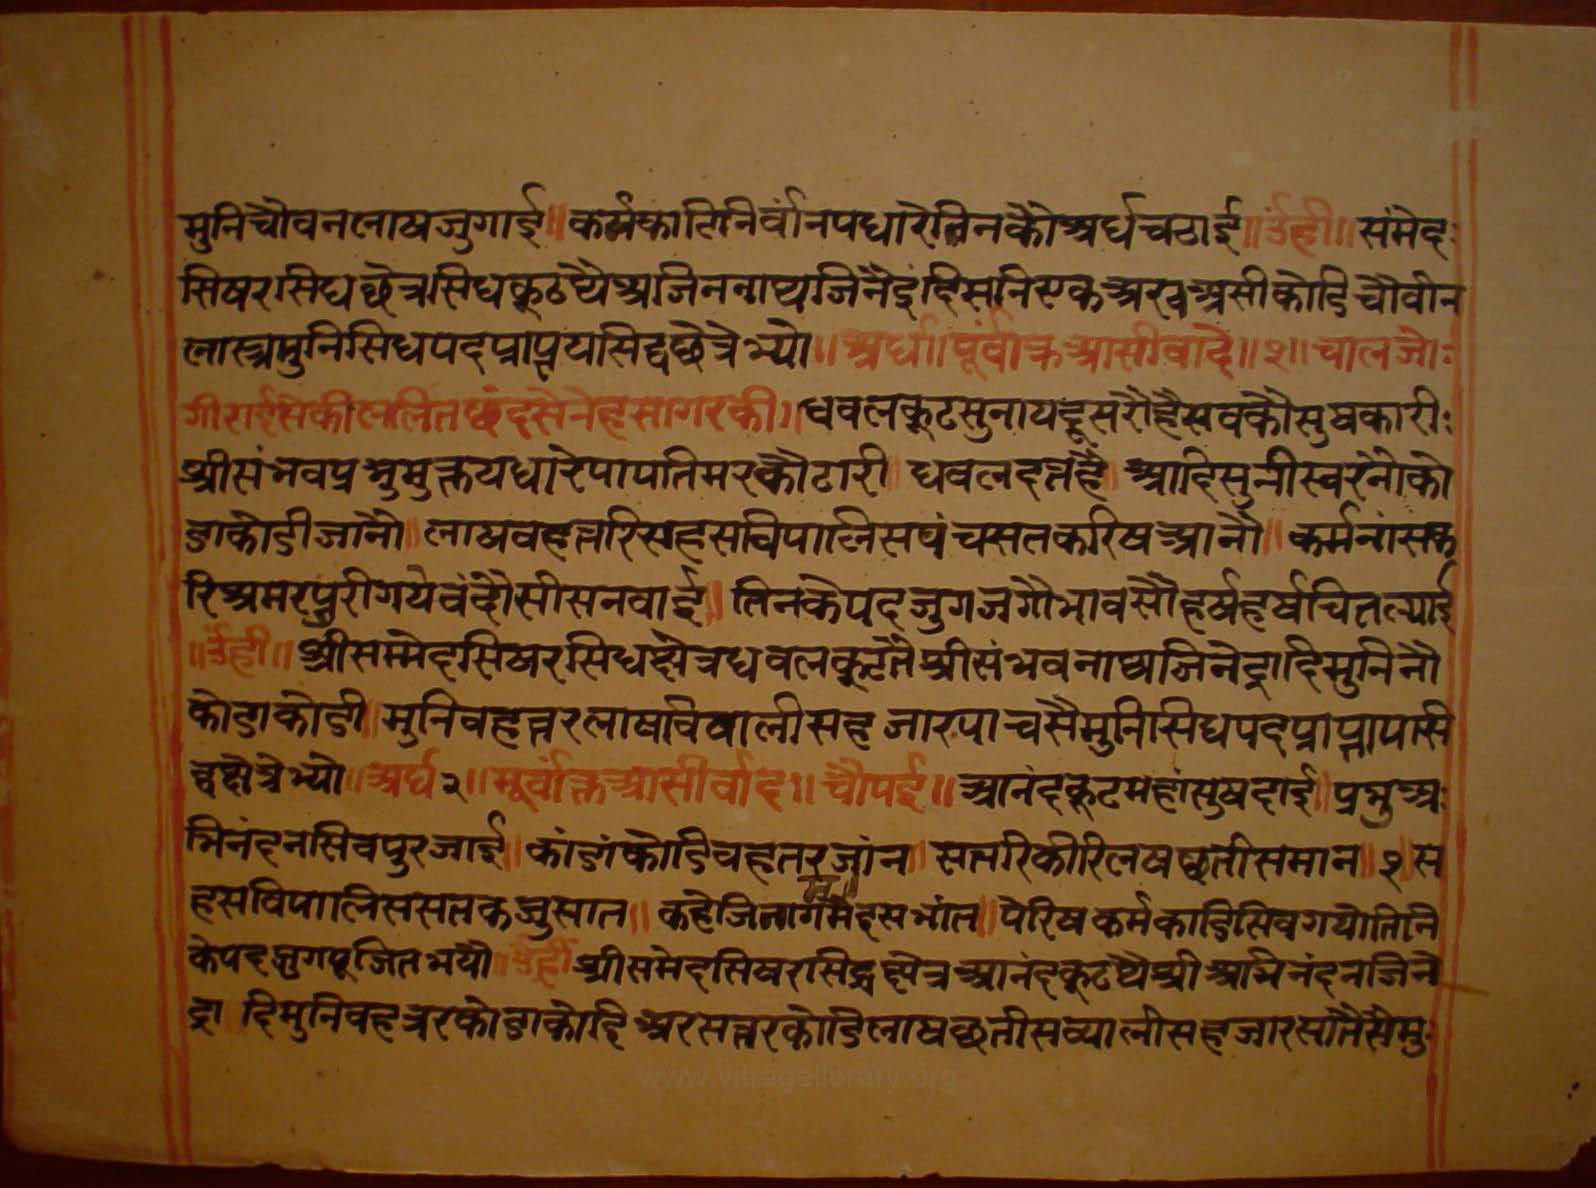 मुनिचौवनलाषजुगाई॥ कर्मकाटिनिर्वांनपधारेतिनकौअर्घचठाई॥ उंह्री॥ संमेद:
सिषरसिघछेत्रसिघकूटथैअजितनाथजिनेंद्रादिमुनिएकअरवअसीकोडिचौवीन
लाषमुनिसिधपदप्राप्तयसिद्धछेत्रेभ्यो॥ अर्घ॥ पूर्वोक्तआसीवाद॥१॥ चालजो:
गीराईसेकीललितछंदसैनेहसागरकी॥ धवलकूटसुनायदूसरौहैसवकौसुषकारी:
श्रीसंभवप्रभुमुक्तयधारेपापतिमरकौटारी॥ धवलदत्तहै॥ आदिमुनीस्वरनौको
डाकोडीजानौ॥ लाषवहत्तरिसहसवियालिसपंचसतकरिषआनौ॥ कर्मनांसक
रिअमरपुरीगयेवंदौसीसनवाई॥ तिनकेपदजुगजगौभावसौहर्षहर्षचितल्याई
॥उंह्री॥ श्रीसम्मेदसिषरसिघक्षेत्रधवलकूटतैश्रीसंभवनाथजिनेंद्रादिमुनिनौ
कोडाकोडी॥ मुनिवहत्तरलाषविवालीसहजारपाचसैमुनिसिधपदप्राप्तापसि
द्वक्षेत्रेभ्यो॥ अर्घ२॥ मूर्वोक्तआसीर्वाद॥ चौपई॥ आनंदकूटमहांसुषदाई॥ प्रभुअ:
भिनंदनसिवपुरजाई॥ कोंडांकोडिवहतरजांन॥ सतरिकोरिलषछतीसमान॥१॥स
हसवियालिससतकजुसात॥ कहेजिनागममैइसभांत॥ पेरिषकर्मकाटिसिवगयोतिनि
केपदजुगपूजितभयौ॥ उंह्रीं॥ श्रीसमेदसिषरसिद्धक्षेत्रआनंदकूटथैश्रीअभिनंदनजिने
द्रा दिमुनिवहत्ररकोडाकोडिअरसत्तरकोडिलाषछतीसव्यालीसहजारसातसैमु:
www.vitragellbrary.org